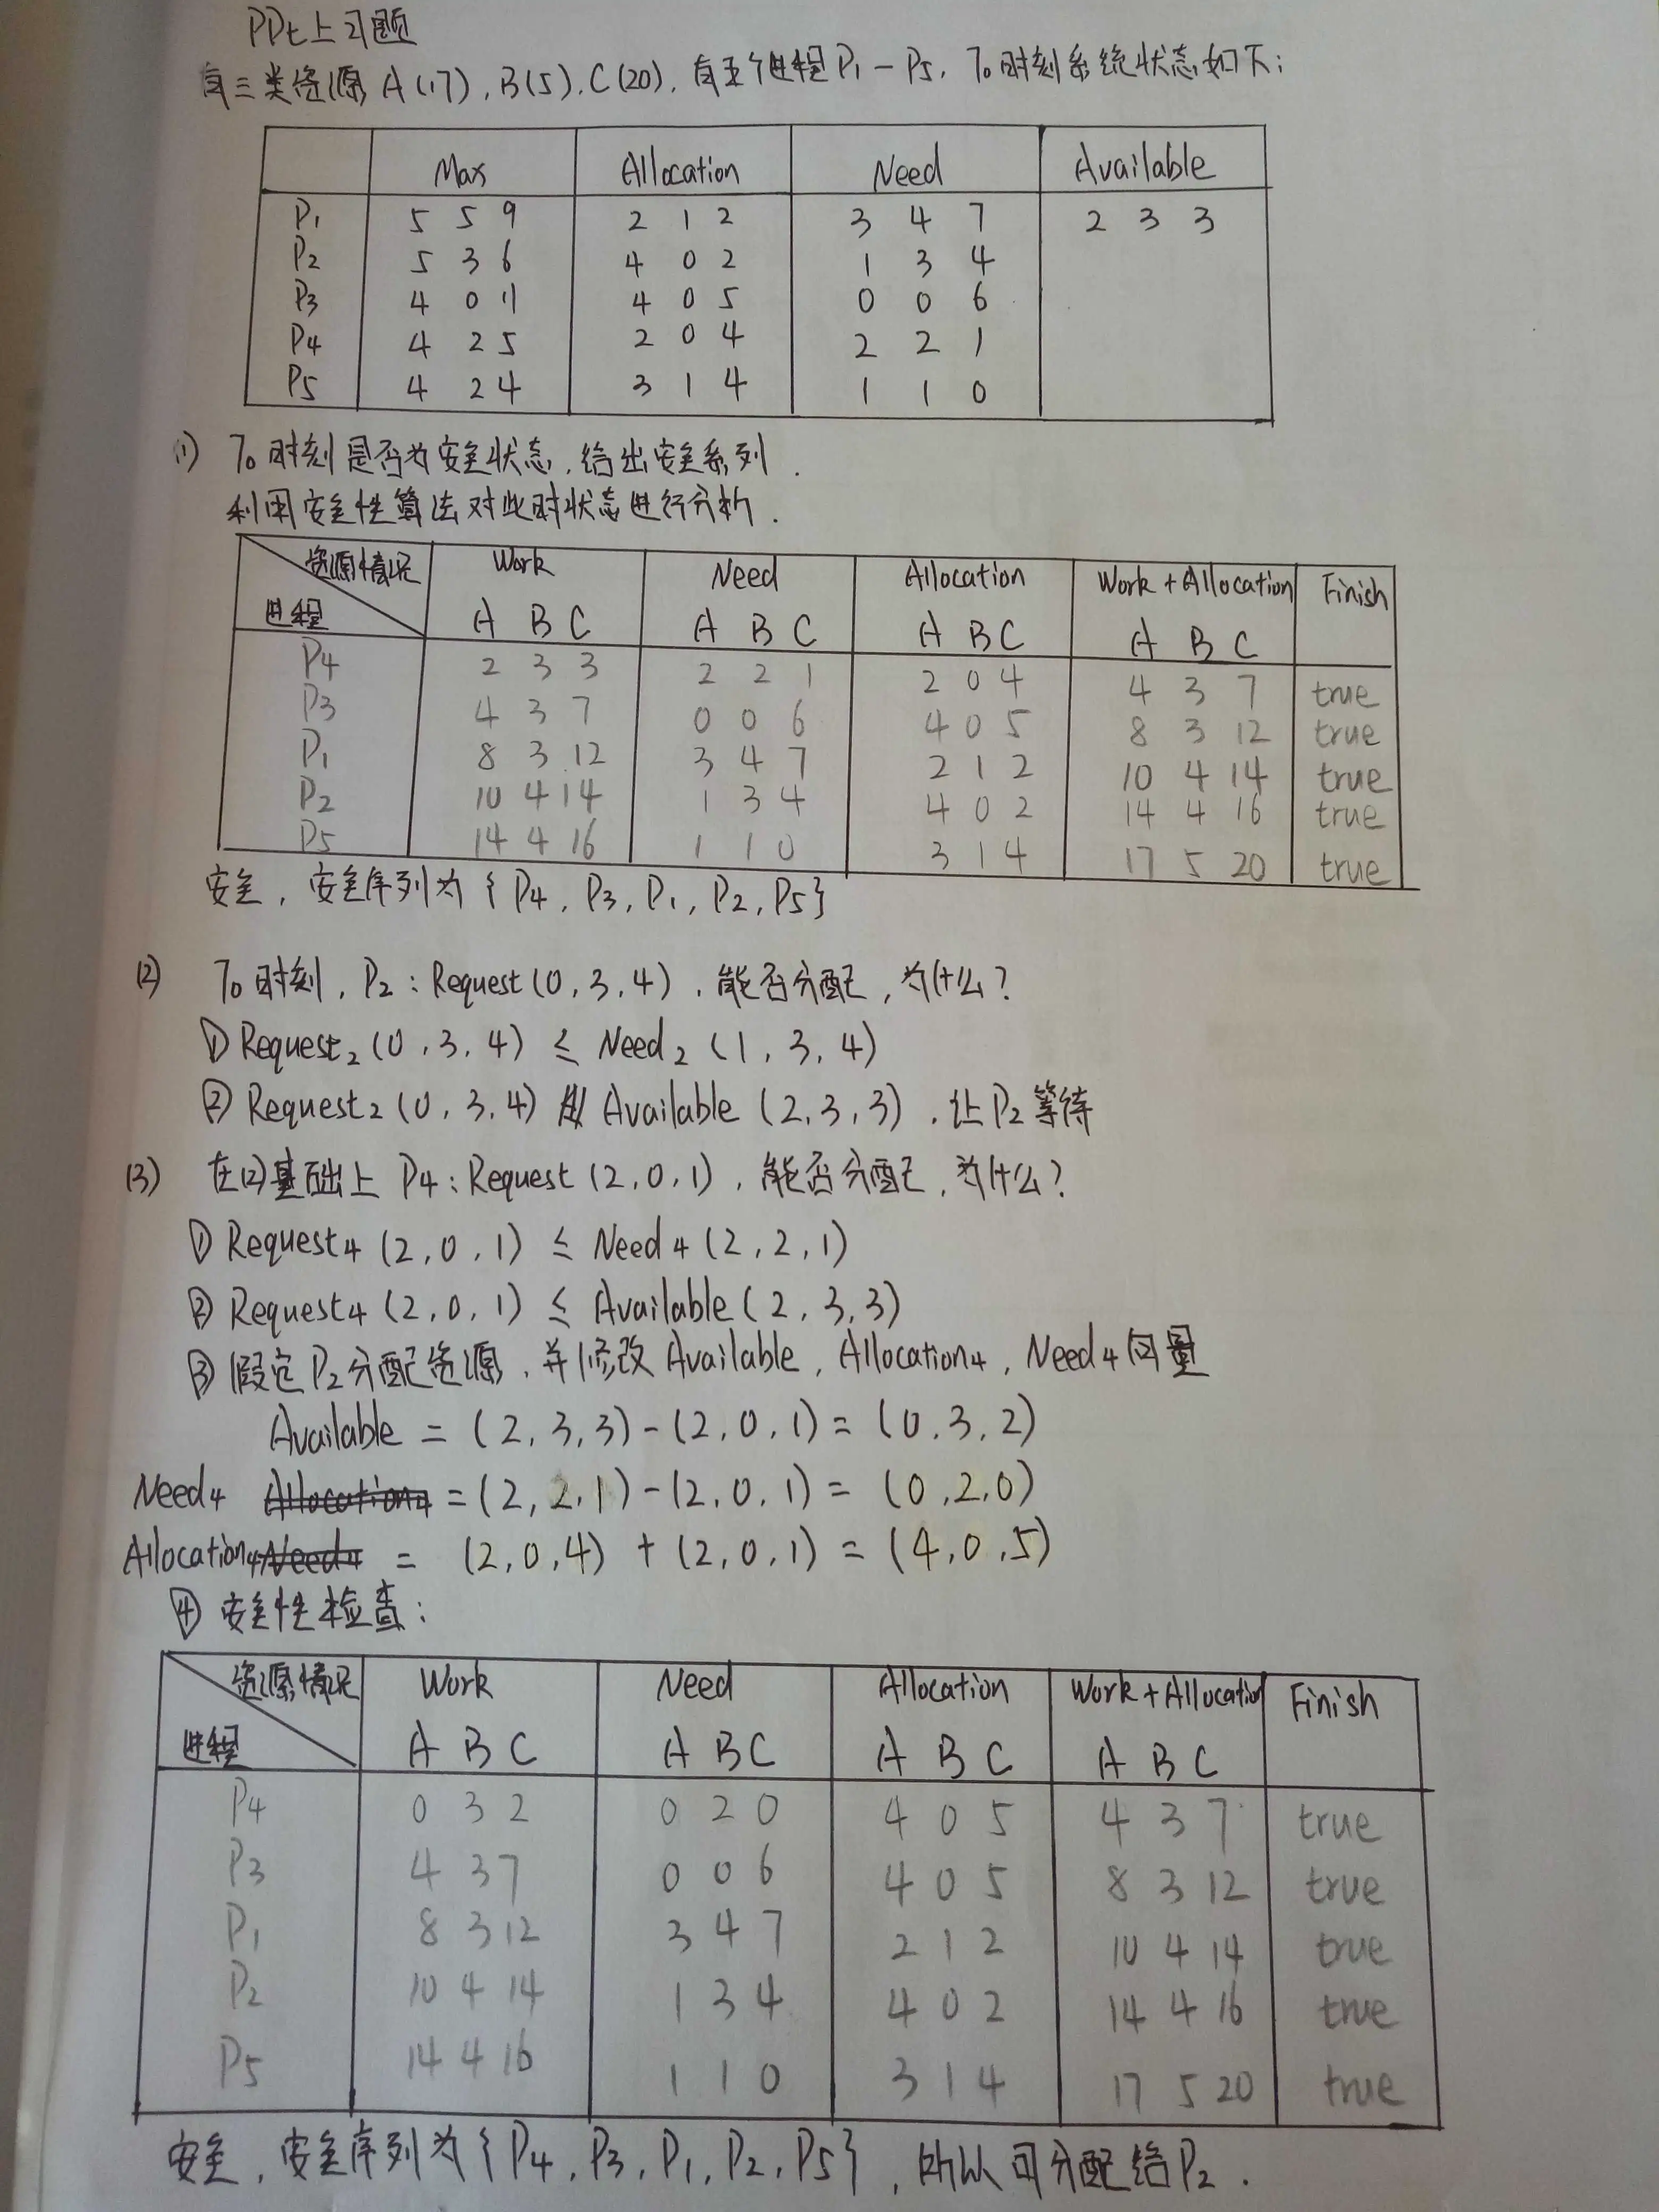 PPt上习题
有三类资源 A(17), B(5), C(20), 有五个进程P₁-P₅, T₀时刻系统状态如下:
Max Allocation Need Available
P₁ 5 5 9 2 1 2 3 4 7 2 3 3
P₂ 5 3 6 4 0 2 1 3 4
P₃ 4 0 11 4 0 5 0 0 6
P₄ 4 2 5 2 0 4 2 2 1
P₅ 4 2 4 3 1 4 1 1 0
(1) T₀时刻是否为安全状态, 给出安全系列.
利用安全性算法对此时状态进行分析.
资源情况 Work Need Allocation Work + Allocation Finish
进程 A B C A B C A B C A B C
P4 2 3 3 2 2 1 2 0 4 4 3 7 true
P3 4 3 7 0 0 6 4 0 5 8 3 12 true
P1 8 3 12 3 4 7 2 1 2 10 4 14 true
P2 10 4 14 1 3 4 4 0 2 14 4 16 true
P5 14 4 16 1 1 0 3 1 4 17 5 20 true
安全, 安全序列为{P4, P3, P1, P2, P5}
(2) T₀时刻, P₂: Request(0,3,4), 能否分配, 为什么?
① Request₂(0,3,4) ≤ Need₂(1,3,4)
② Request₂(0,3,4) ≰ Available(2,3,3), 让P₂等待
(3) 在(2)基础上 P4: Request(2,0,1), 能否分配, 为什么?
① Request4(2,0,1) ≤ Need4(2,2,1)
② Request4(2,0,1) ≤ Available(2,3,3)
③ 假定P₂分配资源, 并修改Available, Allocation4, Need4向量
Available = (2,3,3)-(2,0,1)=(0,3,2)
Need4 Allocation4 =(2,2,1)-(2,0,1)=(0,2,0)
Allocation4 Need4 = (2,0,4)+(2,0,1)=(4,0,5)
④ 安全性检查:
资源情况 Work Need Allocation Work+Allocation Finish
进程 A B C A B C A B C A B C
P4 0 3 2 0 2 0 4 0 5 4 3 7 true
P3 4 3 7 0 0 6 4 0 5 8 3 12 true
P1 8 3 12 3 4 7 2 1 2 10 4 14 true
P2 10 4 14 1 3 4 4 0 2 14 4 16 true
P5 14 4 16 1 1 0 3 1 4 17 5 20 true
安全, 安全序列为{P4, P3, P1, P2, P5}, 所以可分配给P₂.